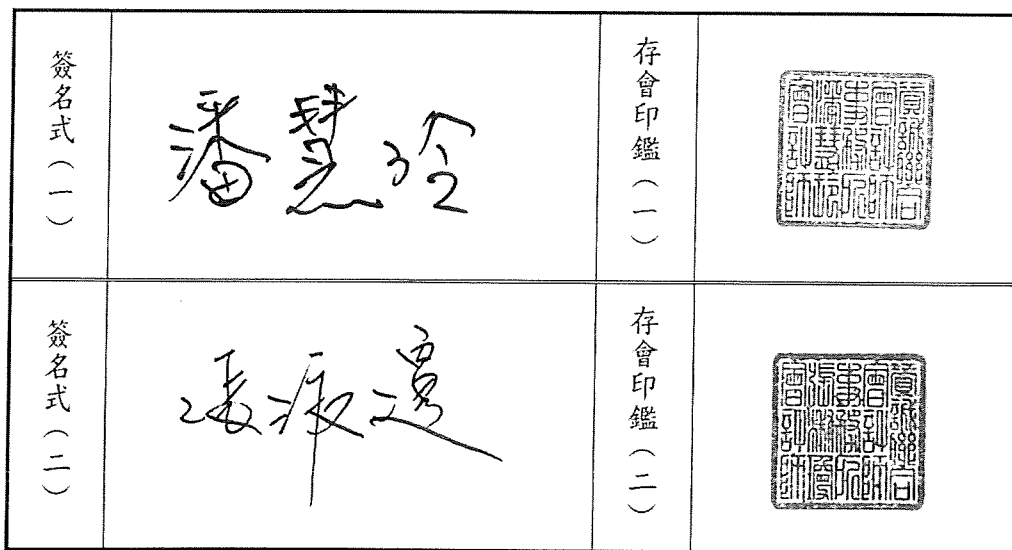 簽名式（一）
潘慧玲
存會印鑑（一）
資誠聯合
會計師
事務所
潘慧玲
會計師
簽名式（二）
張淑瓊
存會印鑑（二）
資誠聯合
會計師
事務所
張淑瓊
會計師